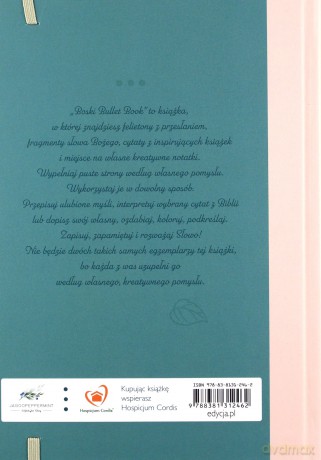 „Boski Bullet Book” to książka,
w której znajdziesz felietony z przesłaniem,
fragmenty słowa Bożego, cytaty z inspirujących książek
i miejsce na własne kreatywne notatki.
Wypełniaj puste strony według własnego pomysłu.
Wykorzystaj je w dowolny sposób.
Przepisuj ulubione myśli, interpretuj wybrany cytat z Biblii
lub dopisz swój własny, ozdabiaj, koloruj, podkreślaj.
Zapisuj, zapamiętuj i rozważaj Słowo!
Nie będzie dwóch takich samych egzemplarzy tej książki,
bo każda z was uzupełni go
według własnego, kreatywnego pomysłu.
Hospicjum Cordis
Kupując książkę
wspierasz
Hospicjum Cordis
ISBN 978-83-8131-246-2
9 788381 312462
edycja.pl
avamax